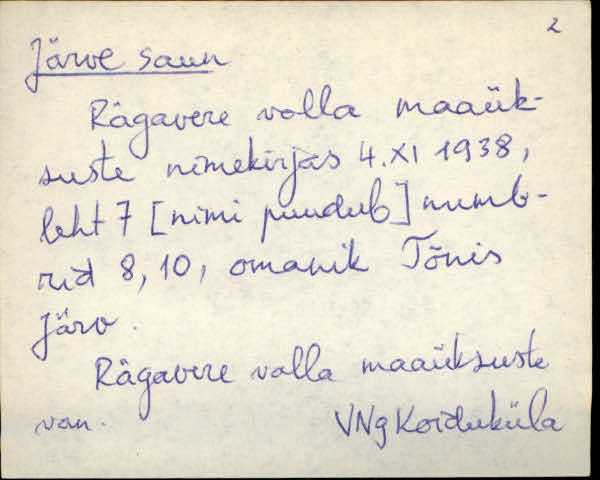 2
Järve saun
Rägavere valla maaük-
suste nimekirjas 4.XI 1938,
leht 7 [nimi puudub] numb-
rid 8, 10, omanik Tõnis
Järv.
Rägavere valla maaüksuste
van. VNg Koiduküla